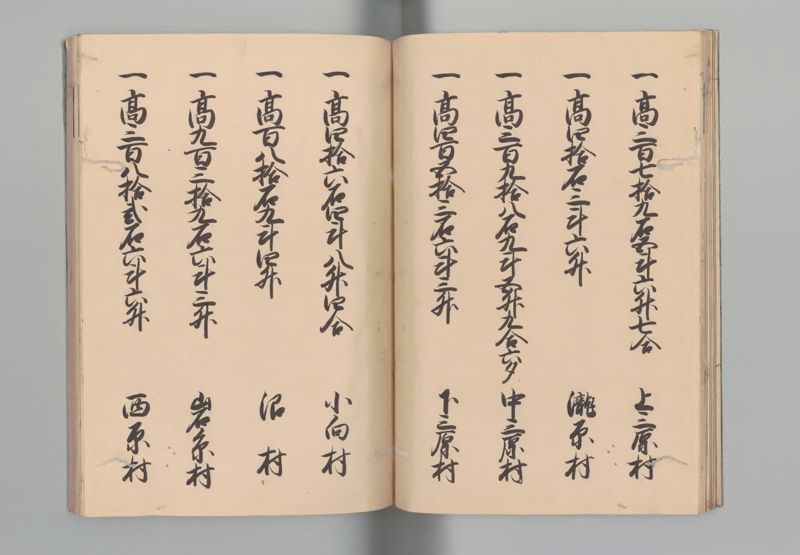 一高三百七拾九石五斗六升七合 上三原村
一高四拾石三斗六升 瀧原村
一高三百九拾八石九斗五升九合六夕 中三原村
一高四百五拾三石六斗三升 下三原村
一高四拾六石四斗八升四合 小向村
一高百八拾石九斗四升 沼村
一高九百三拾九石六斗三升 岩原村
一高三百八拾弐石六斗六升 西原村